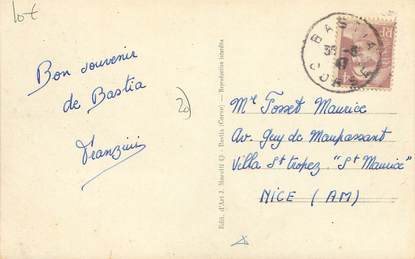 lot
Bon souvenir
de Bastia
Franzini
20
Edit. d'Art J. Moretti
Bastia (Corse) — Reproduction interdite
BASTIA
CORSE
RF
Mr Fosset Maurice
Av. Guy de Maupassant
Villa St tropez "St Maurice"
NICE (AM)